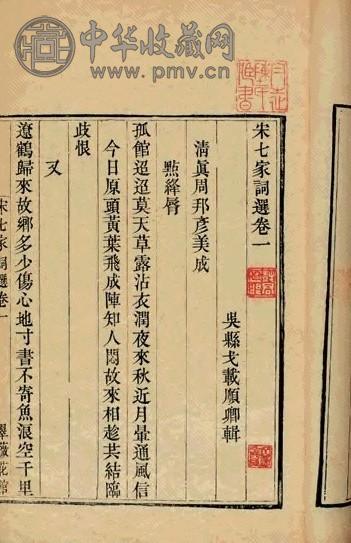 中华收藏网
www.pmv.cn
宋七家詞選卷一
吳縣戈載順卿輯
清眞周邦彥美成
點絳脣
孤館迢迢莫天草露沾衣潤夜來秋近月暈通風信
今日原頭黃葉飛成陣知人悶故來相趁共結臨
歧恨
又
遼鶴歸來故鄉多少傷心地寸書不寄魚浪空千里
宋七家詞選卷一
翠薇花館